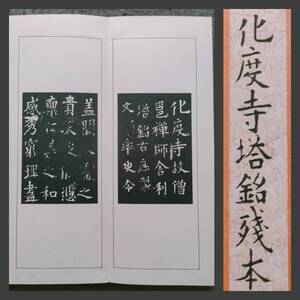 化度寺塔銘殘本
化度寺故僧
邕禪師舍利
塔銘右庶製
文率更令
蓋聞人靈之
貴攸憑
稟仁之和
感秀窮理盡